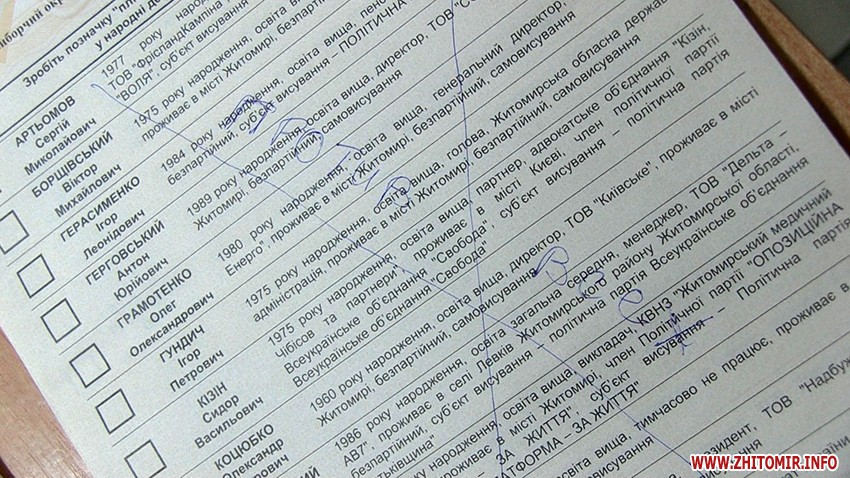 иборчий окр
Зробіть позначку "плі
у народні де
АРТЬОМОВ
Сергій
Миколайович
1977 року народження, освіта вища, пенс
ТОВ "ФрісландКампіна
"ВОЛЯ", суб'єкт висування – ПОЛІТИЧНА
БОРЩІВСЬКИЙ
Віктор
Михайлович
1975 року народження, освіта вища, директор, ТОВ "С
проживає в місті Житомирі, безпартійний, самовисування
ГЕРАСИМЕНКО
Ігор
Леонідович
1984 року народження, освіта вища, генеральний директор,
безпартійний, суб'єкт висування
ГЕРГОВСЬКИЙ
Антон
Юрійович
1989 року народження, освіта вища, голова, Житомирська обласна держав
Житомирі, безпартійний, самовисування
ГРАМОТЕНКО
Олег
Олександрович
1980 року народження, освіта вища,
Енерго", проживає в місті Житомирі, безпартійний, самовисування
ГУНДИЧ
Ігор
Петрович
1975 року народження, освіта вища,
адміністрація, проживає в місті Житомирі,
КІЗІН
Сидор
Васильович
1975 року народження, освіта вища, партнер, адвокатське об'єднання "Кізін,
Чібісов та партнери", проживає в місті Києві, член політичної партії
Всеукраїнське об'єднання "Свобода", суб'єкт висування – політична партія
Всеукраїнське об'єднання "Свобода"
КОЦЮБКО
Олександр
1960 року народження, освіта вища, директор, ТОВ "Київське", проживає в місті
Житомирі, безпартійний, самовисування
1986 року народження, освіта загальна середня, менеджер, ТОВ "Дельта –
АВ7", проживає в селі Левків Житомирського району Житомирської області,
безпартійний, суб'єкт висування – політична партія Всеукраїнське об'єднання
тьківщина"
освіта вища, викладач, КВНЗ "Житомирський медичний
проживає в місті Житомирі, член Політичної партії "ОПОЗИЦІЙНА
– ЗА ЖИТТЯ", суб'єкт висування – Політична партія
АТФОРМА – ЗА ЖИТТЯ"
освіта вища, тимчасово не працює, проживає в
самовисування
президент, ТОВ "Надбуж
Проти
Всех
WWW.ZHITOMIR.INFO